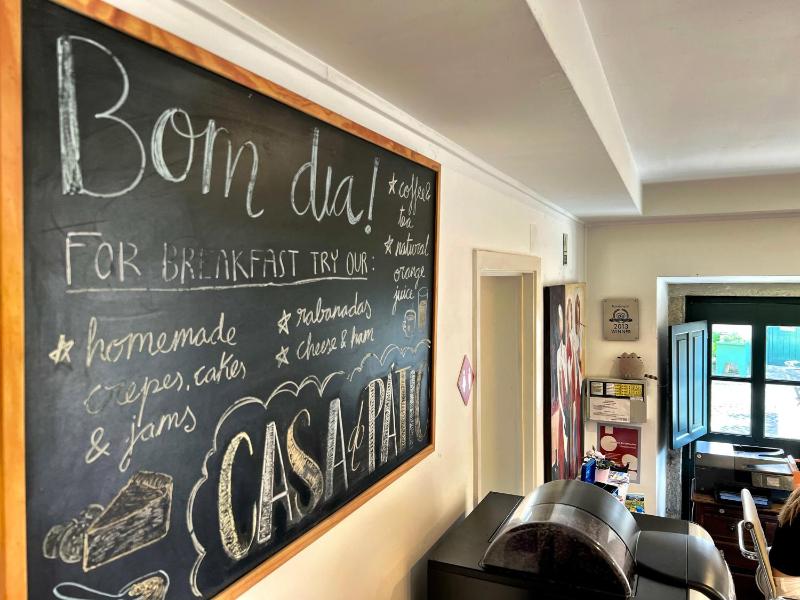 Bom dia!
FOR BREAKFAST TRY OUR:
☆ homemade
crepes, cakes
& jams
☆ rabanadas
☆ cheese & ham
☆ coffee &
tea
☆ natural
orange
juice
CASA d PATIO
2013
WINNER